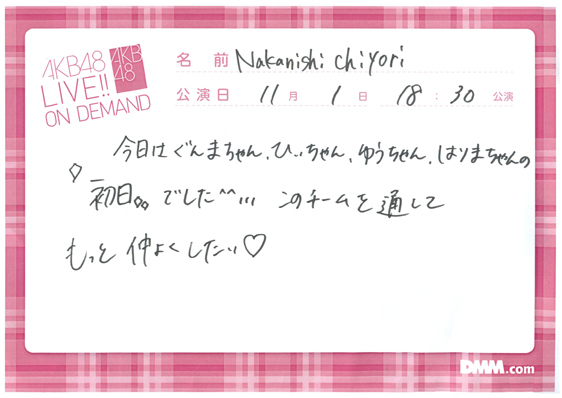 AKB48
LIVE!!
ON DEMAND
AKB
48
名前 Nakanishi Chiyori
公演日 11月 1日 18:30公演
今日はぐんまちゃん、ひぃちゃん、ゆうちゃん、はりまちゃんの
初日。。でした^^... このチームを通して
もっと仲よくしたぃ♡
DMM.com